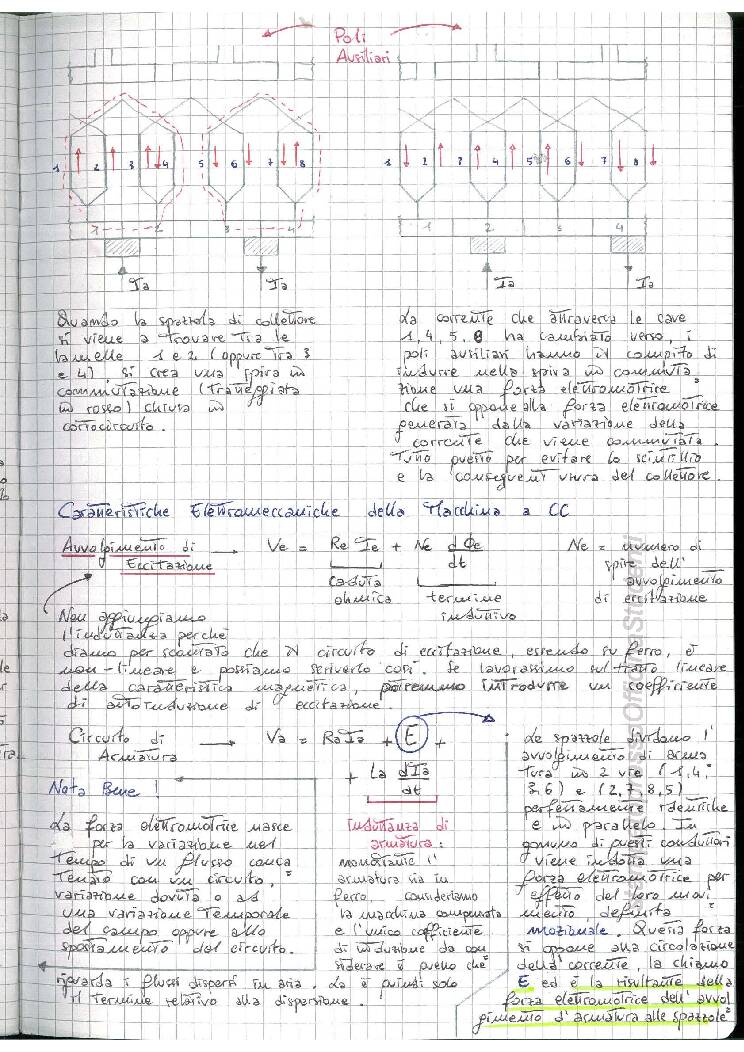 Poli
Ausiliari
1 2 3 4 5 6 7 8
1 2 3 4 5 6 7 8
1 2 3 4
1 2 3 4
Ia Ia
Ia Ia
Quando la spazzola di collettore
si viene a trovare tra le
lamelle 1 e 2 (oppure tra 3
e 4), si crea una spira in
commutazione (tratteggiata
in rosso) chiusa in
cortocircuito.
La corrente che attraversa le cave
1, 4, 5, 8 ha cambiato verso, i
poli ausiliari hanno il compito di
indurre nella spira in commuta
zione una forza elettromotrice
che si oppone alla forza elettromotrice
generata dalla variazione della
corrente che viene commutata.
Tutto questo per evitare lo scintillio
e la conseguente usura del collettore.
Caratteristiche Elettromeccaniche della Macchina a CC
Avvolgimento di
Eccitazione
Ve = Re Ie + Ne dΦe
dt
Caduta
ohmica
termine
induttivo
Ne = numero di
spire dell'
avvolgimento
di eccitazione
Non aggiungiamo
l'induttanza perché
diamo per scontato che il circuito di eccitazione, essendo su ferro, è
non-lineare e possiamo scriverlo così. Se lavorassimo sul tratto lineare
della caratteristica magnetica, potremmo introdurre un coefficiente
di autoinduzione di eccitazione.
Circuito di
Armatura
Va = RaIa + E +
+ La dIa
dt
Nota Bene!
La forza elettromotrice nasce
per la variazione nel
tempo di un flusso conca
tenato con un circuito,
variazione dovuta o ad
una variazione temporale
del campo oppure allo
spostamento del circuito.
Induttanza di
armatura:
nonostante l'
armatura sia in
ferro, consideriamo
la macchina compensata
e l'unico coefficiente
di induzione da con
siderare è quello che
riguarda i flussi dispersi in aria. La è quindi solo
il termine relativo alla dispersione.
Le spazzole dividono l'
avvolgimento di arma
tura in 2 vie (1,4,
3,6) e (2,7,8,5)
perfettamente identiche
e in parallelo. In
ognuno di questi conduttori
viene indotta una
forza elettromotrice per
effetto del loro movi
mento, definita
mozionale. Questa forza
si oppone alla circolazione
della corrente, la chiamo
E ed è la risultante della
forza elettromotrice dell'avvol
gimento d'armatura alle spazzole